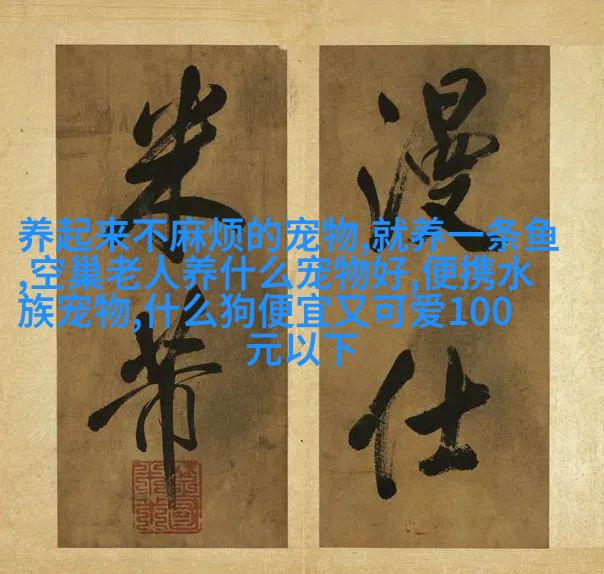 漫仕
米芾
养起来不麻烦的宠物,就养一条鱼
,空巢老人养什么宠物好,便携水
族宠物,什么狗便宜又可爱100
元以下